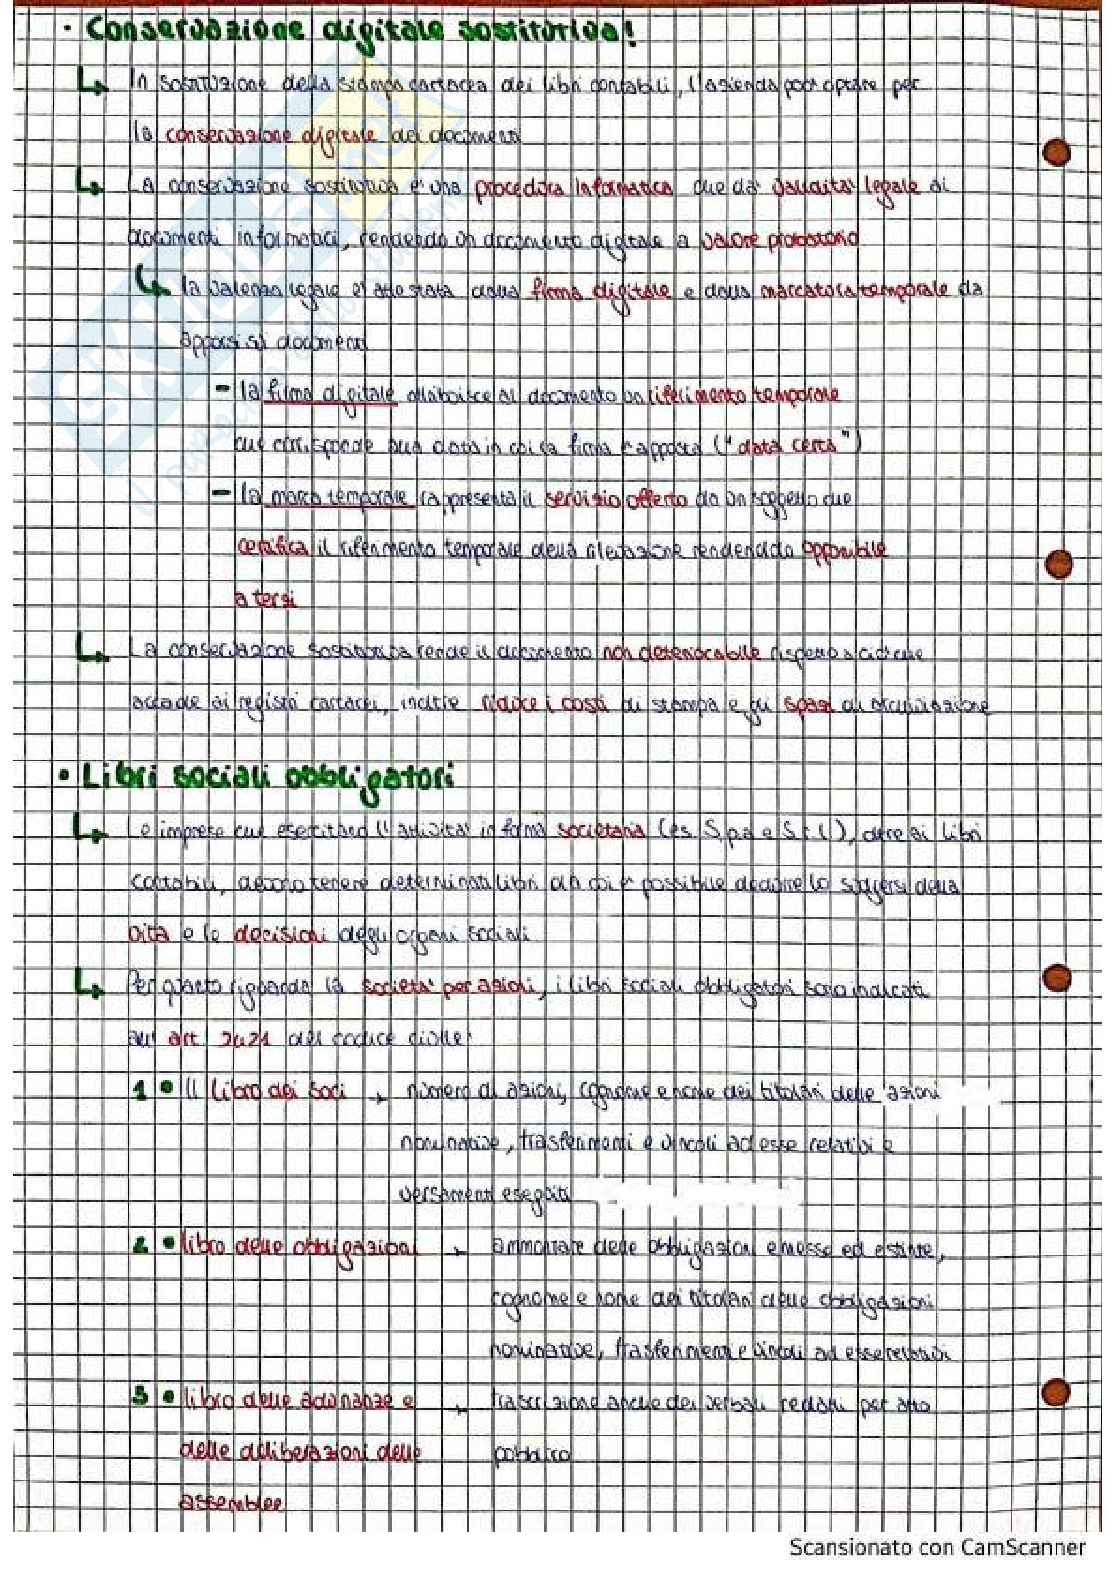 • Conservazione digitale sostitutiva!
↳ In sostituzione della stampa cartacea dei libri contabili, l'azienda può optare per
la conservazione digitale dei documenti
↳ La conservazione sostitutiva è una procedura informatica che dà validità legale ai
documenti informatici, rendendo un documento digitale a valore probatorio
↳ la valenza legale è attestata dalla firma digitale e dalla marcatura temporale da
apporsi ai documenti
- la firma digitale attribuisce al documento un riferimento temporale
cui corrisponde alla data in cui la firma è apposta ("data certa")
- la marca temporale rappresenta il servizio offerto da un soggetto che
certifica il riferimento temporale della rilevazione rendendola opponibile
a terzi
↳ La conservazione sostitutiva rende il documento non deteriorabile rispetto a ciò che
accade ai registri cartacei, inoltre riduce i costi di stampa e gli spazi di archiviazione
• Libri sociali obbligatori
↳ Le imprese che esercitano l'attività in forma societaria (es. S.p.a e S.r.l), oltre ai libri
contabili, devono tenere determinati libri da cui è possibile dedurre lo svolgersi della
vita e le decisioni degli organi sociali
↳ Per quanto riguarda la società per azioni, i libri sociali obbligatori sono indicati
all' art. 2421 del codice civile:
1 • Il libro dei soci → numero di azioni, cognome e nome dei titolari delle azioni
nominative, trasferimenti e vincoli ad esse relativi e
versamenti eseguiti
2 • libro delle obbligazioni → ammontare delle obbligazioni emesse ed estinte,
cognome e nome dei titolari delle obbligazioni
nominative, trasferimenti e vincoli ad esse relativi
3 • libro delle adunanze e → trascrizione anche dei verbali redatti per atto
delle deliberazioni delle pubblico
assemblee
Scansionato con CamScanner